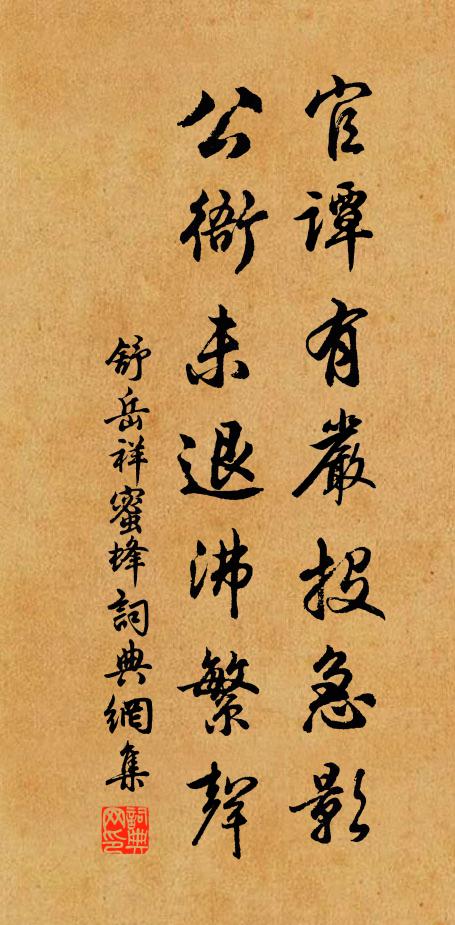 官譚有嚴投急影
公衙未退沸繁聲
舒岳祥蜜蜂詞典網集
詞典网印